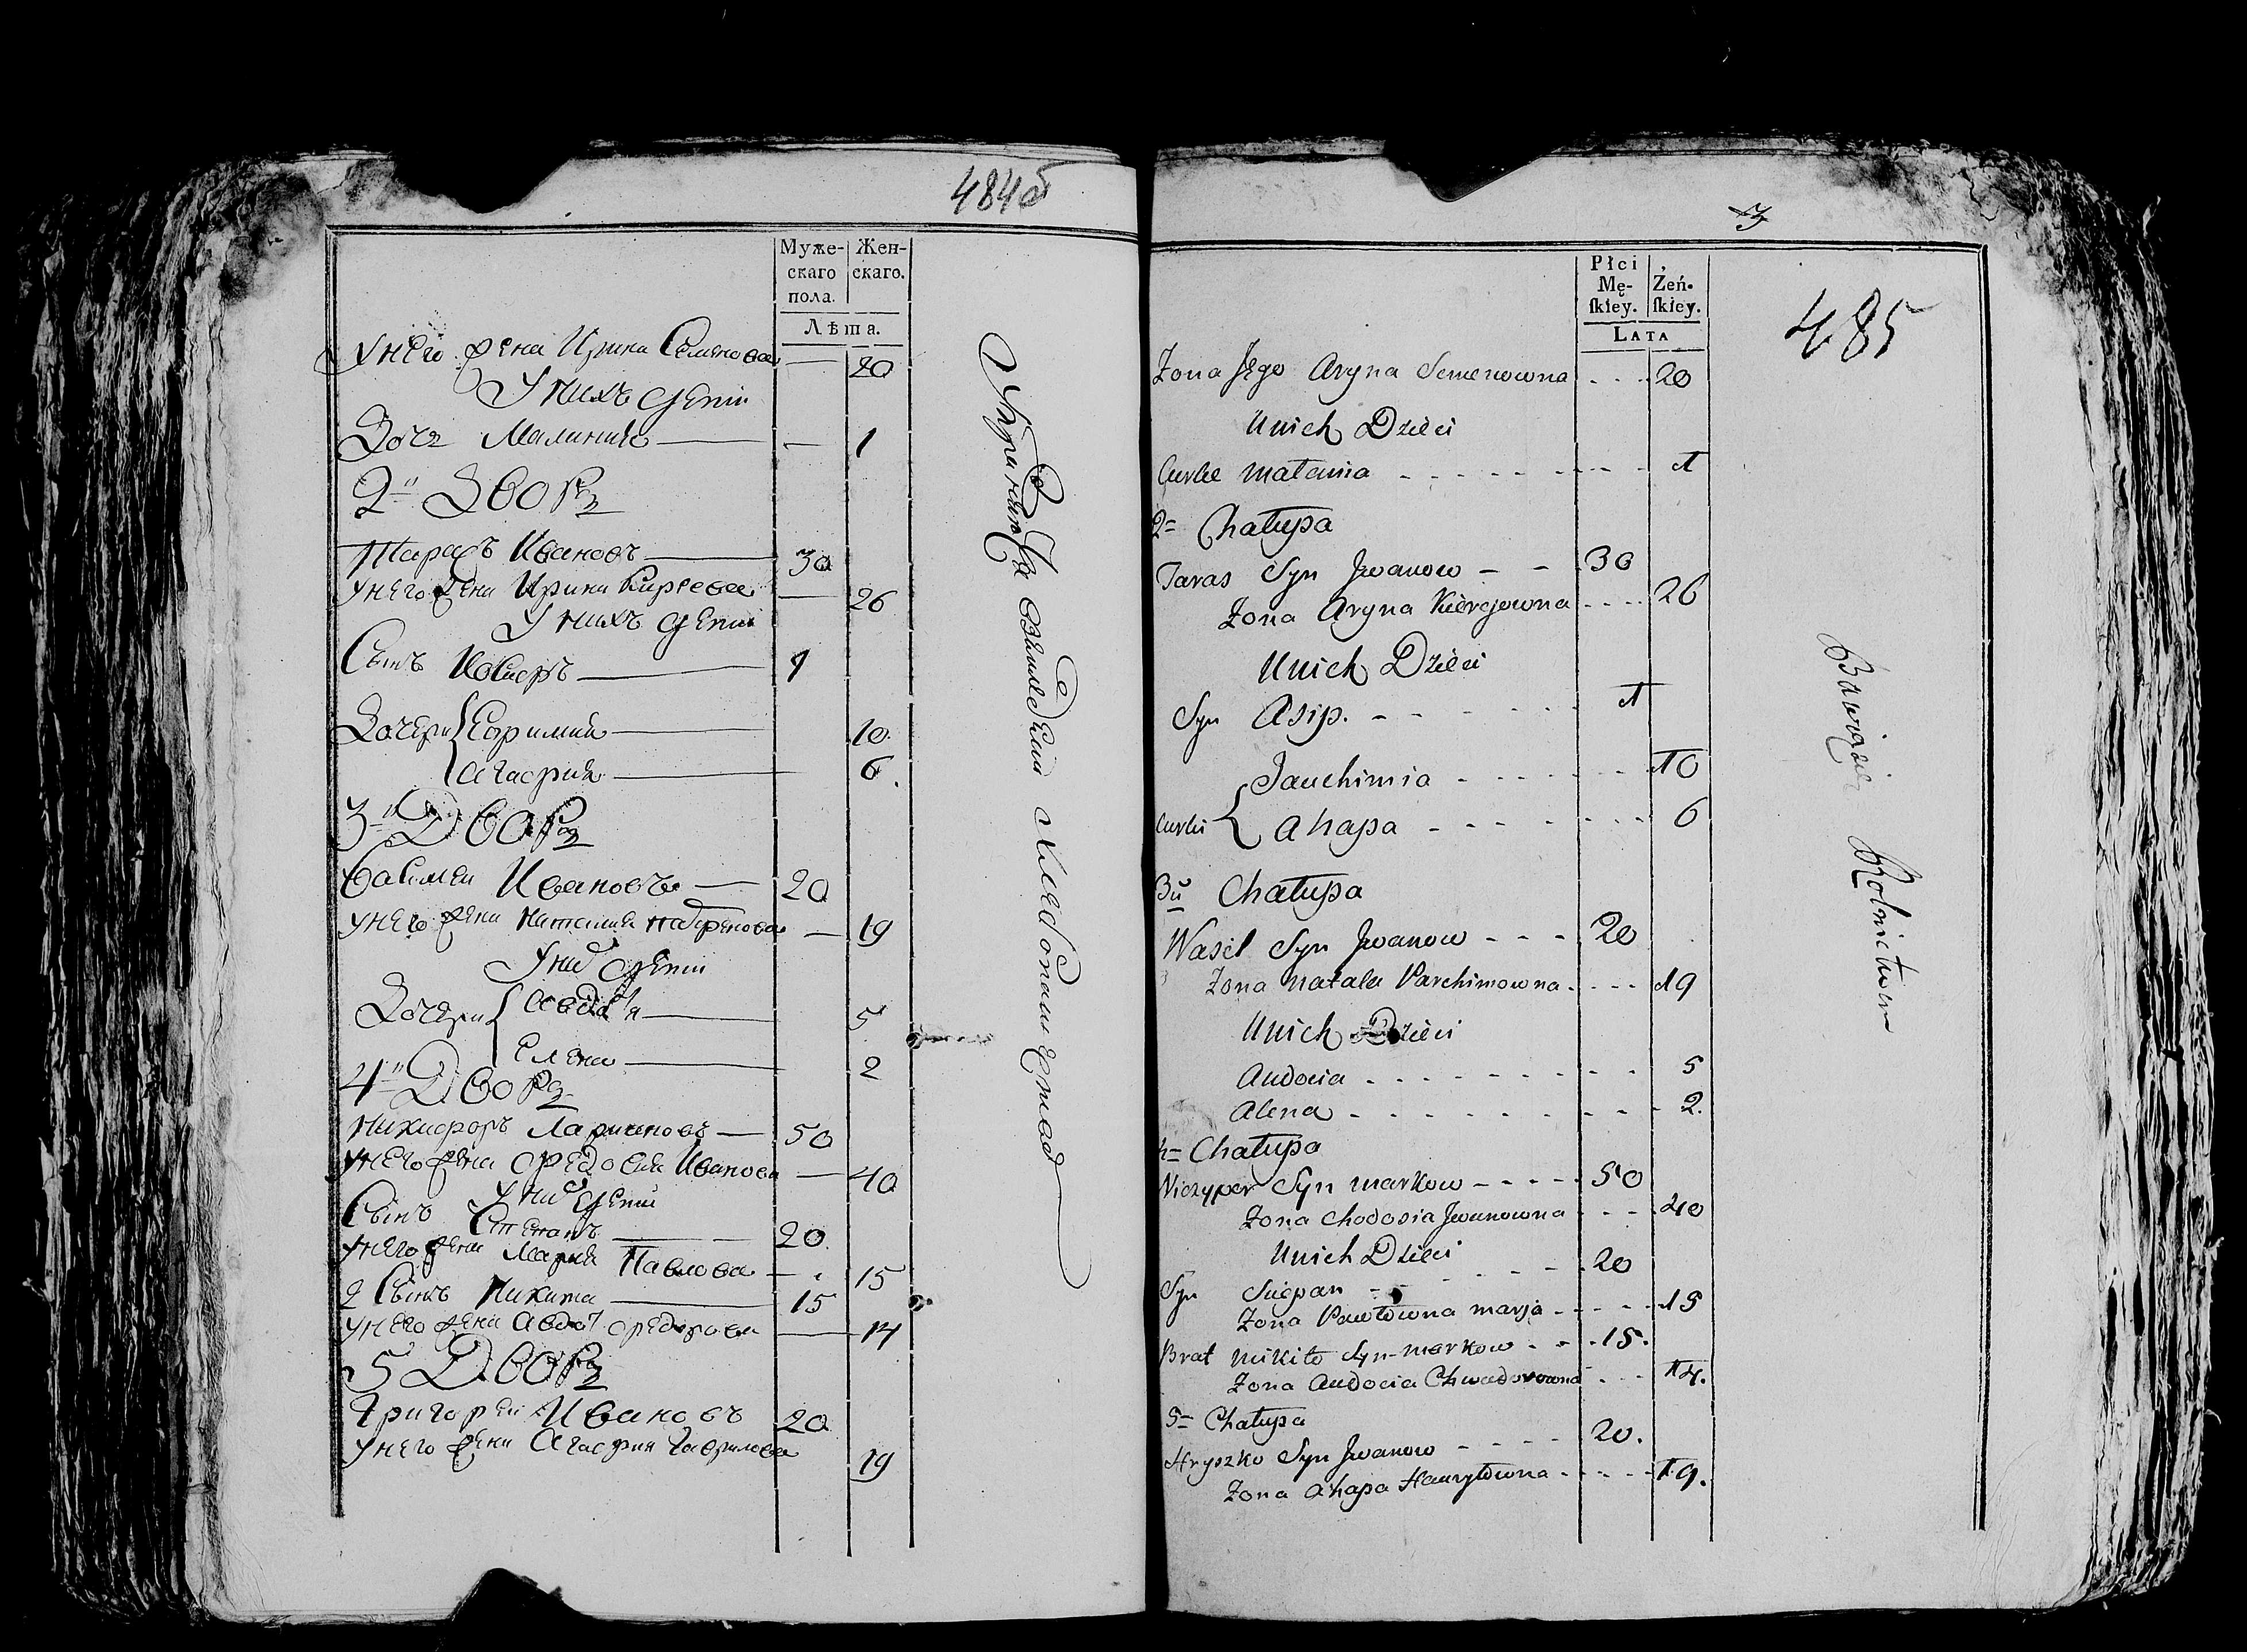 484об
Муже-
скаго
пола.
Жен-
скаго.
Лѣта.
У него жена Ирина Семенова 20
У нихъ дети
Дочь Малания 1
2й Дворъ
Тарасъ Ивановъ 30
У него жена Ирина Киреева 26
У нихъ дети
Сынъ Иосифъ 1
Дочери Ефимия 10
Агафия 6
3й Дворъ
Василей Ивановъ 20
У него жена Наталия 19
У них дети
Дочери Авдотья 5
Елена 2
4й Дворъ
Никифоръ 50
У него жена Федосия Иванова 40
У них дети
Сынъ Степанъ 20
У него жена Мария Павлова 15
2 Сынъ Никита 15
У него жена Авдот Федорова 14
5 Дворъ
Григорей Ивановъ 20
У него жена Агафия Гаврилова 19
Упражняются в земледелии
3
485
Płci
Mę-
skiey.
Żeń-
skiey.
Lata
Zona Jego Aryna Semenowna 20
Unich Dzieci
Curke Małania 1
2= Chałupa
Taras Syn Jwanow 30
Zona Aryna Kierejowna 26
Unich Dzieci
Syn Asip. 1
Jauchimia 10
Curki Ahapa 6
3u Chałupa
Wasil Syn Jwanow 20
Zona Natala Parchimowna 19
Unich Dzieci
Audocia 5
Alena 2.
4= Chałupa
Niczyper Syn Markow 50
Zona Chodosia Jwanowna 40
Unich Dzieci
Syn Sciepan 20
Zona Pawłowna Marja 15
Brat Mikito Syn Markow 15.
Zona Audocia Chwadorowna 14.
5= Chałupa
Hryszko Syn Jwanow 20.
Zona Ahapa Hauryłowna 19.
Bawiąsie Rolnictwem